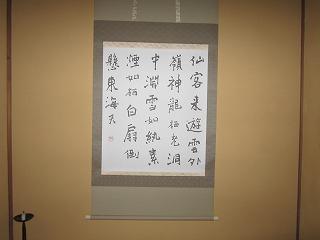 仙客来遊雲外
巓神龍栖老洞
中淵雪如紈素
煙如柄白扇倒
懸東海天